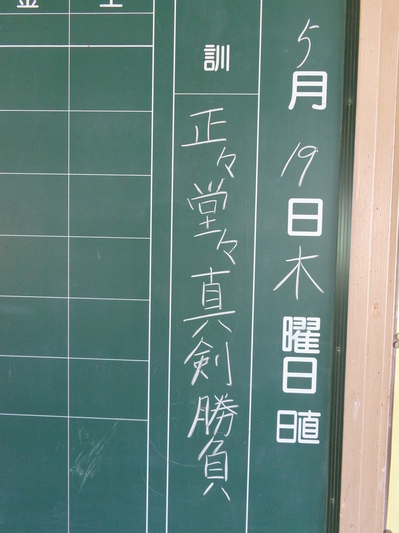 5月19日木曜日
訓
正々堂々真剣勝負
土
金